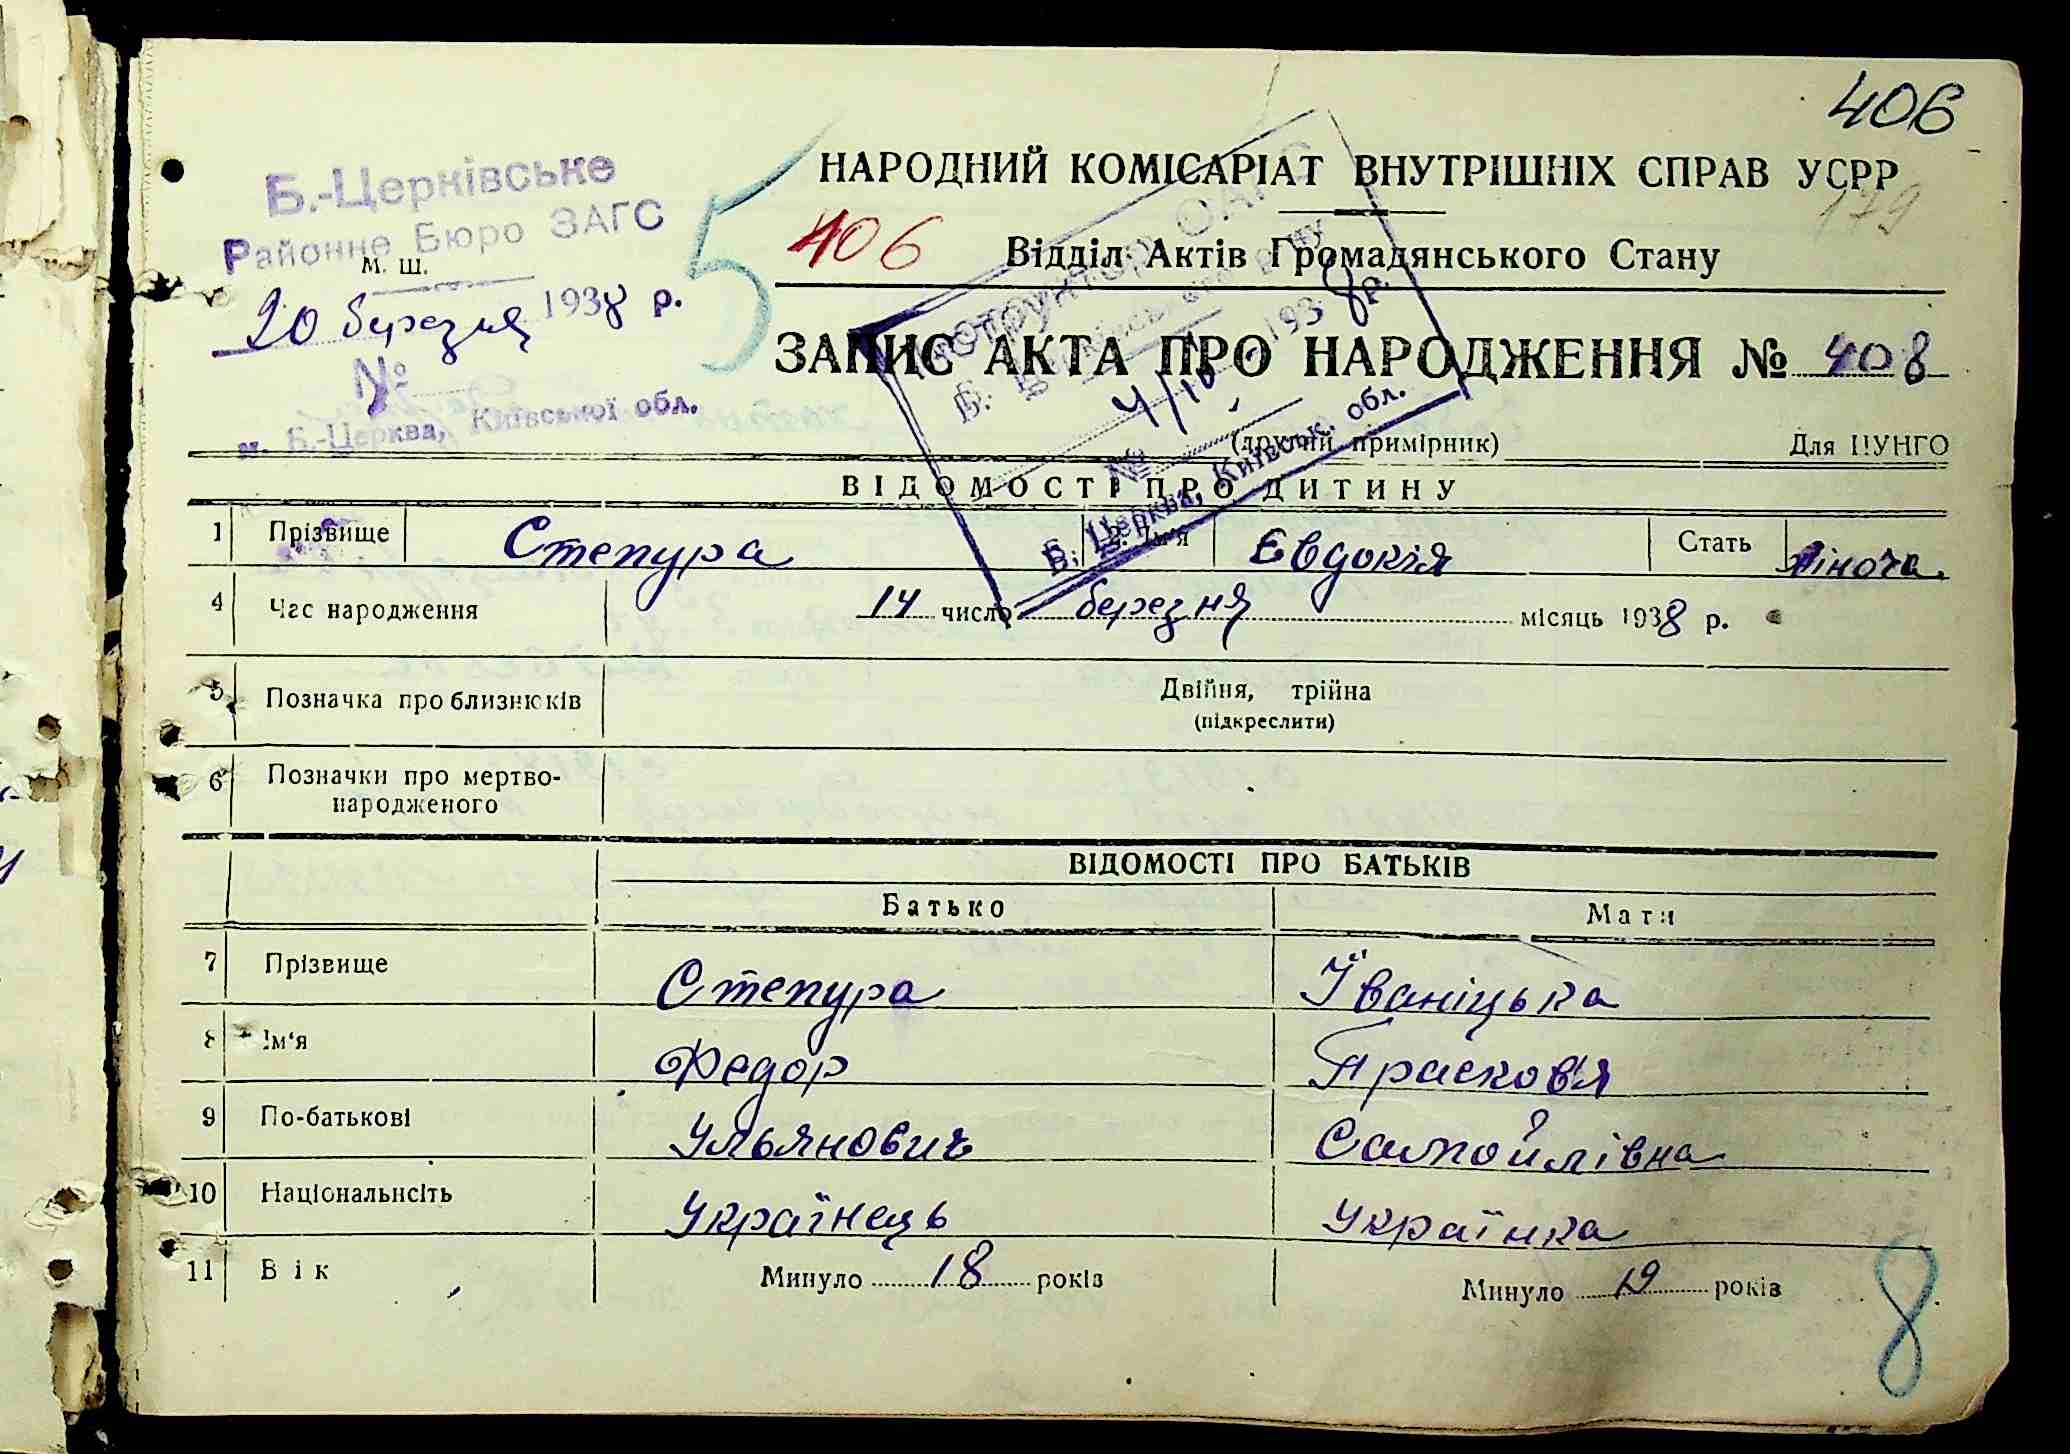 406
Б.-Церківське
Районне Бюро ЗАГС
М. Ш.
20 березня 1938 р.
№
м. Б.-Церква, Київської обл.
5
НАРОДНИЙ КОМІСАРІАТ ВНУТРІШНІХ СПРАВ УСРР
179
406 Відділ Актів Громадянського Стану
ЗАПИС АКТА ПРО НАРОДЖЕННЯ № 408
(другий примірник) Для ЦУНГО
193 8 р.
4/10
№
Б. Церква, Київськ. обл.
ВІДОМОСТІ ПРО ДИТИНУ
1 Прізвище Степура 2. Ім'я Євдокія Стать Жіноча
4 Час народження 14 число березня місяць 1938 р.
5 Позначка про близнюків Двійня, трійна
(підкреслити)
6 Позначки про мертво-
народженого
ВІДОМОСТІ ПРО БАТЬКІВ
Батько Мати
7 Прізвище Степура Їваніцька
8 Ім'я Федор Прасковя
9 По-батькові Ульянович Самойлівна
10 Національність Українець Українка
11 Вік Минуло 18 років Минуло 19 років
8